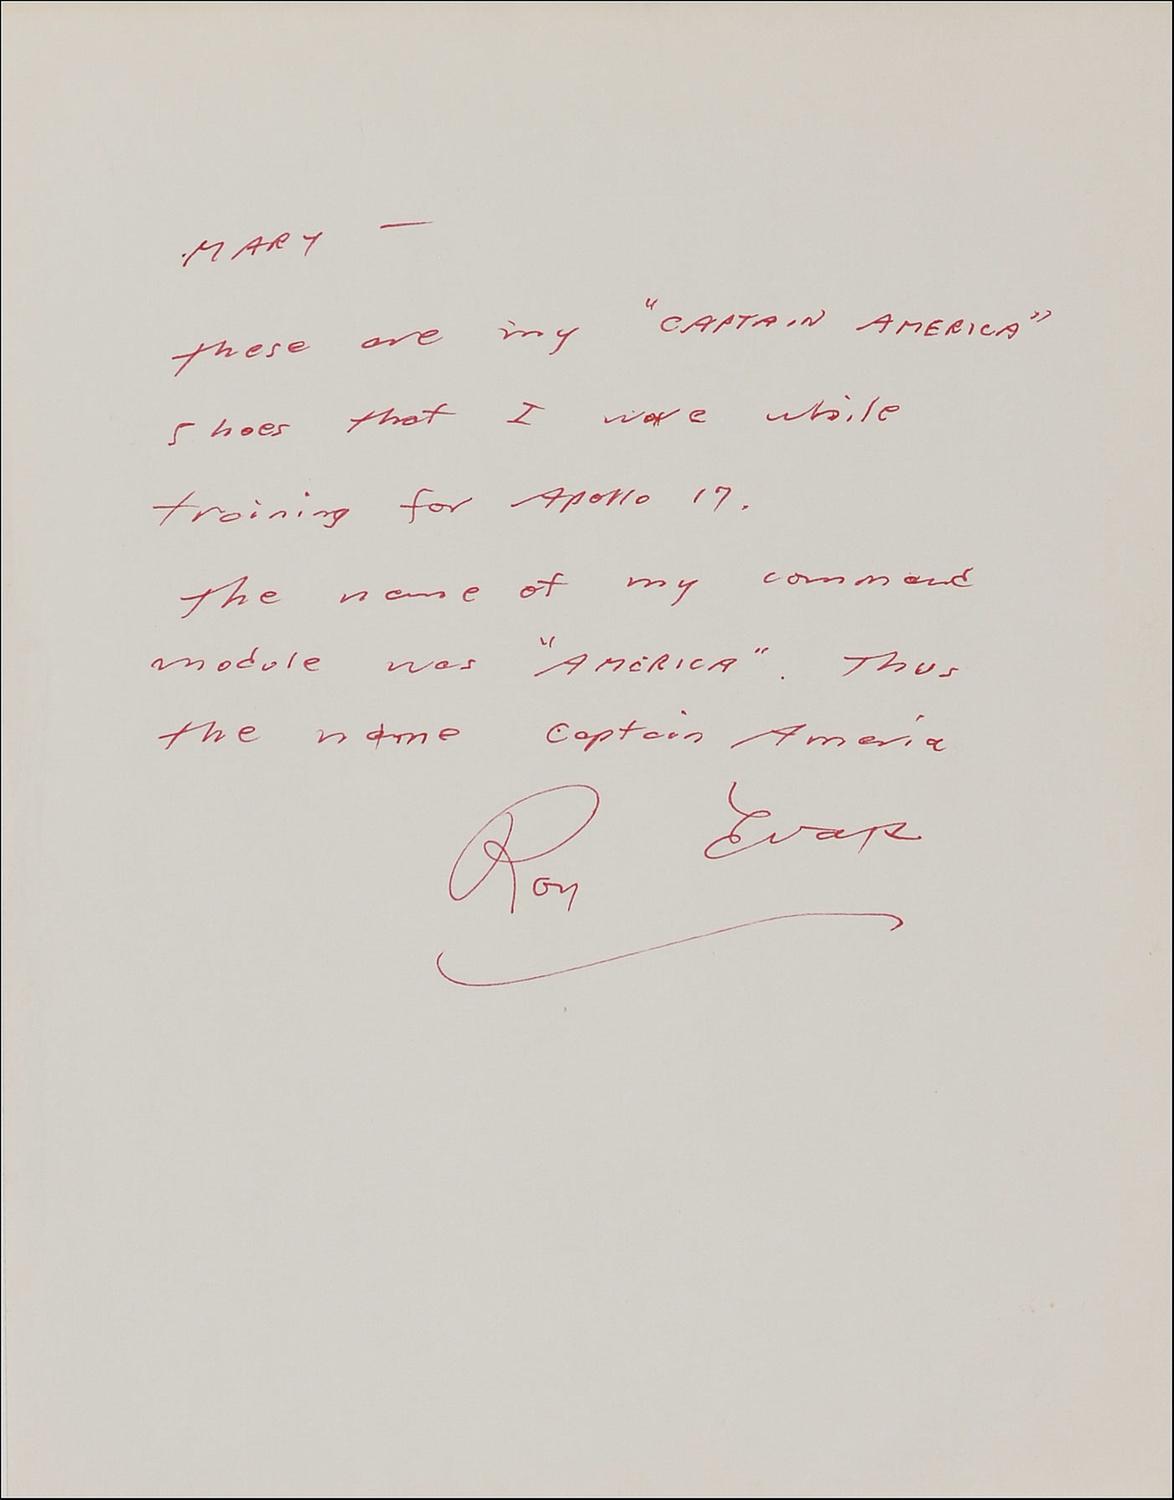 MARY —
these are my "CAPTAIN AMERICA"
shoes that I wore while
training for Apollo 17.
the name of my command
module was "AMERICA". Thus
the name Captain Ameria
Ron Evans